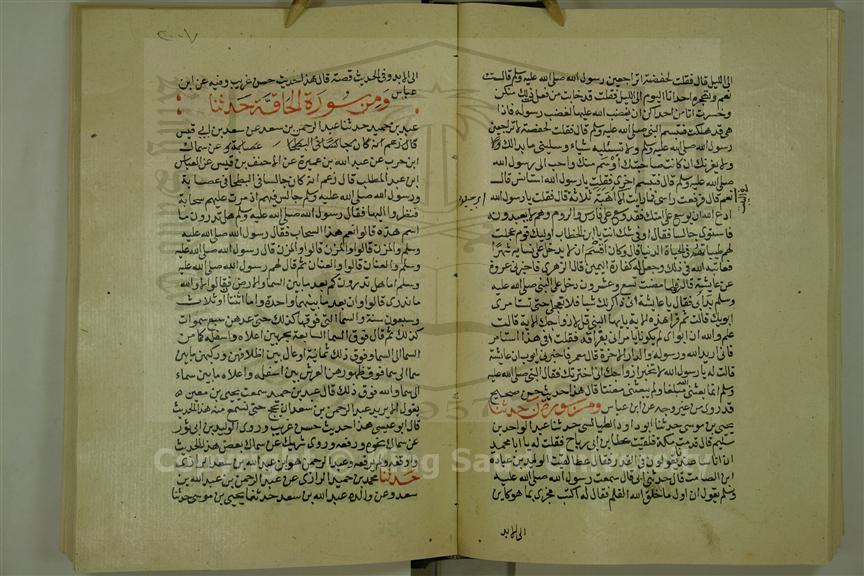 الى الليل قال فقلت لحفصة اتراجعين رسول الله صلى الله عليه وسلم قالت
نعم وتهجره احدانا اليوم الى الليل فقلت قد خابت من فعل ذلك منكن
وخسرت اتامن احداكن ان يغضب الله عليها لغضب رسوله فاذا
هي قد هلكت فتبسم النبي صلى الله عليه وسلم قال فقلت لحفصة لا تراجعين
رسول الله صلى الله عليه وسلم ولا تسئليه شياء وسليني ما بدالك
ولا يغرنك ان كانت صاحبتك اوسم منك واحب الى رسول الله
صلى الله عليه وسلم قال فتبسم اخرى فقلت يا رسول الله استانس قال
نعم قال فرفعت راسي فما رايت الا اهبة ثلاثة قال فقلت يا رسول الله
ادع الله ان يوسع على امتك فقد وسع على فارس والروم وهم لا يعبدونه
فاستوى جالسا فقال اوفي شك انت يا ابن الخطاب اوليك قوم عجلت
لهم طيباتهم في الحياة الدنيا قال وكان اقسم ان لا يدخل على نسايه شهرا
فعاتبه الله في ذلك وجعل له كفارة اليمين قال الزهري فاخبرني عروة
عن عايشة قالت فلما مضت تسع وعشرون دخل على النبي صلى الله عليه
وسلم بدا بي فقال يا عايشة اني ذاكر لك شيا فلا تعجلي حتى تستامري
ابويك قالت ثم قرا هذه الاية يا ايها النبي قل لازواجك الاية قالت
علم والله ان ابوي لم يكونا يامراني بفراقه فقلت افي هذا استامر
فاني اريد الله ورسوله والدار الاخرة قال معمر فاخبرني ايوب ان عايشة
قالت له يا رسول الله لا تخبر ازواجك اني اخترتك فقال النبي صلى الله عليه
وسلم انما بعثني الله مبلغا ولم يبعثني متعنتا قال هذا حديث حسن صحيح
قد روي من غير وجه عن ابن عباس ومن سورة ن حدثنا
يحيى بن موسى حدثنا ابو داود الطيالسي حدثنا عبد الواحد بن
سليم قال قدمت مكة فلقيت عطا بن ابي رباح فقلت له يا ابا محمد
ان اناسا عندنا يقولون في القدر فقال عطا لقيت الوليد بن عبادة
ابن الصامت قال حدثني ابي قال سمعت رسول الله صلى الله عليه
وسلم يقول ان اول ما خلق الله القلم فقال له اكتب فجرى بما هو كاين
الى الابد
الى الابد وفي الحديث قصة قال هذا حديث حسن غريب وفيه عن ابن
عباس ومن سورة الحاقة حدثنا
عبد بن حميد حدثنا عبد الرحمن بن سعد عن سعد بن ابي قيس
عن سماك
ابن حرب عن عبد الله بن عميرة عن الاحنف بن قيس عن العباس
ابن عبد المطلب قال زعم انه كان جالسا في البطحا في عصابة
ورسول الله صلى الله عليه وسلم جالس فيهم اذ مرت عليهم سحابة
فنظروا اليها فقال رسول الله صلى الله عليه وسلم هل تدرون ما
اسم هذه قالوا نعم هذا السحاب فقال رسول الله صلى الله عليه
وسلم والمزن قالوا والمزن قال رسول الله صلى الله عليه
وسلم والعنان قالوا والعنان ثم قال لهم رسول الله صلى الله عليه
وسلم اما هل تدرون كم بعد ما بين السما والارض فقالوا لا والله
ما ندري قالوا فان بعد ما بينهما واحدة واما اثنتان او ثلاث
وسبعون سنة والسما التي فوقها كذلك حتى عدهن سبع سموات
كذلك ثم قال فوق السما السابعة بحر بين اعلاه واسفله كما بين
السما الى السما وفوق ذلك ثمانية اوعال بين اظلافهن وركبهن ما بين
سما الى سما فوق ظهورهن العرش بين اسفله واعلاه ما بين سماء
الى سماء والله فوق ذلك قال عبد بن حميد سمعت يحيى بن معين
يقول الا يريد عبد الرحمن بن سعد ان يحج حتى نسمع منه هذا الحديث
قال ابو عيسى هذا حديث حسن غريب وروى الوليد بن ابي ثور
عن سماك نحوه ورفعه وروى شريك عن سماك بعض هذا الحديث
واوقفه ولم يرفعه وعبد الرحمن هو ابن عبد الله بن سعد الرازي
حدثنا محمد بن حميد الرازي عن عبد الرحمن بن عبد الله بن
سعد وعن والده عبد الله بن سعد حدثنا يحيى بن موسى حدثنا
Copyright © King Saud University
1957